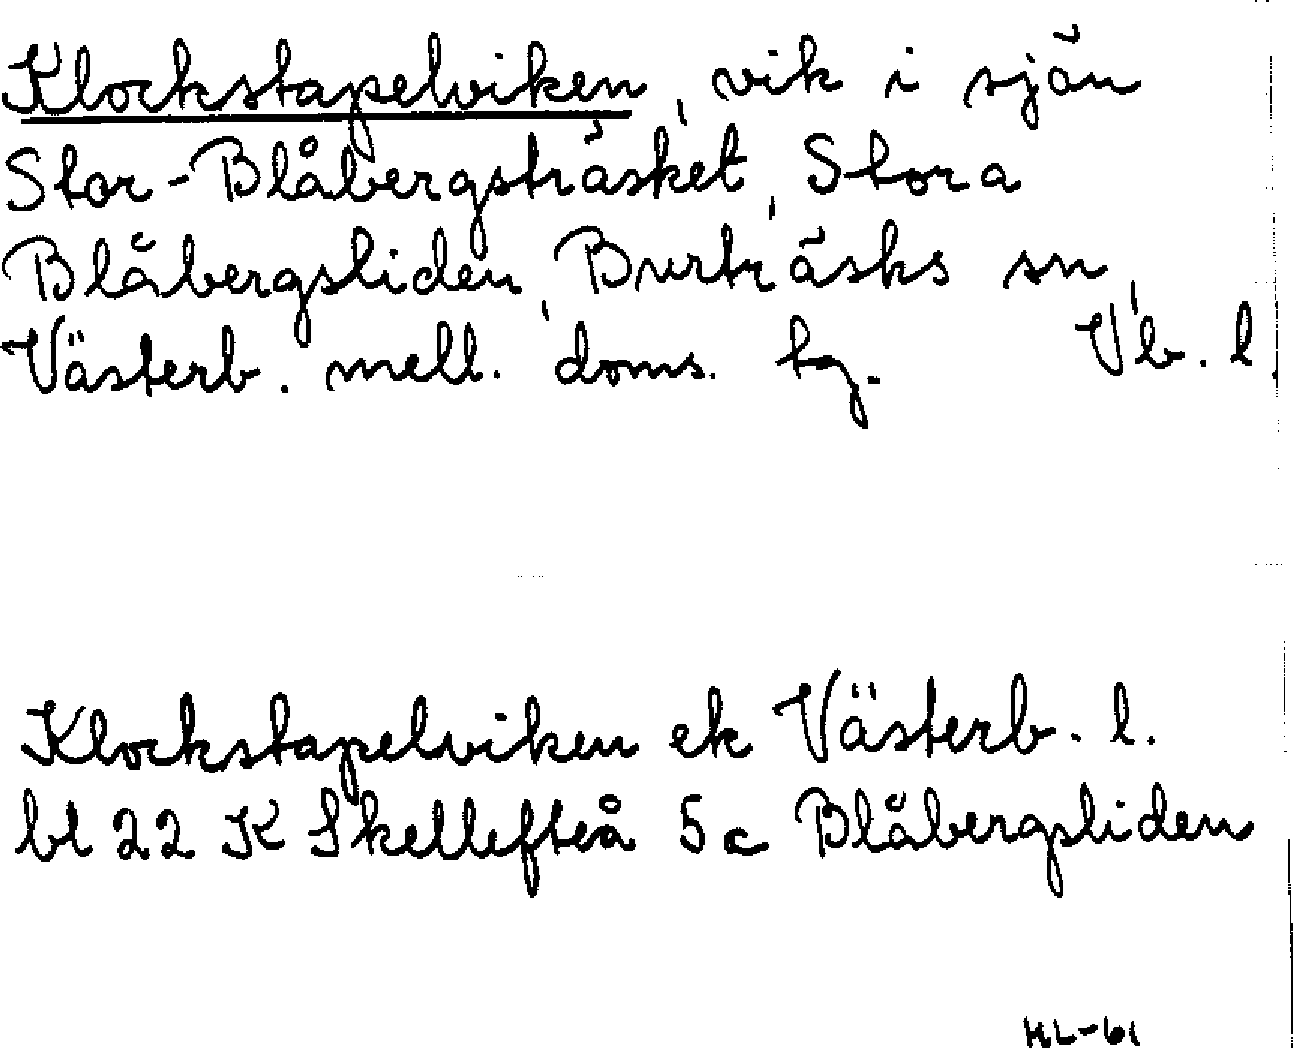 Klockstapelviken, vik i sjön
Stor-Blåbergsträsket, Stora
Blåbergsliden, Burträsks sn,
Västerb. mell. doms. tg. Vb. l.
Klockstapelviken ek Västerb. l.
bl 22 K Skellefteå 5c Blåbergsliden
HL-61